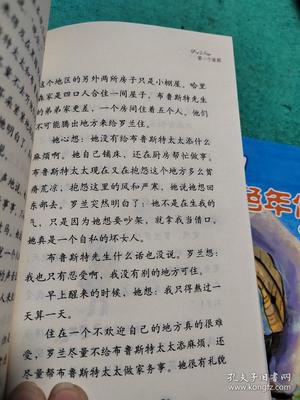 第一个星期
这个地区的另外两所房子只是小棚屋。哈里
森家是四口人合住一间屋子，布鲁斯特先生
的弟弟家更差，一个房间住着五个人。他们
不可能腾出地方来给罗兰住。
她心想：她没有给布鲁斯特太太添什么
麻烦啊。她自己铺床，还在厨房帮忙做事。
布鲁斯特太太现在又在抱怨这个地方多么贫
瘠荒凉，抱怨这里的风和严寒，她说她想回
东部去。罗兰突然明白了：她不是在生我的
气，只是因为她想要吵架，就拿我当借口。
她真是一个自私的坏女人。
布鲁斯特先生什么话也没说。罗兰想：
我也只有忍受啊，我没有别的地方可住。
早上醒来的时候，她想：我只得熬过一
天算一天。
住在一个不欢迎自己的地方真的很难
受，罗兰尽量不给布鲁斯特太太添麻烦，还
尽量帮布鲁斯特太太做家务事。她很有礼貌
色年代
孔夫子旧书网